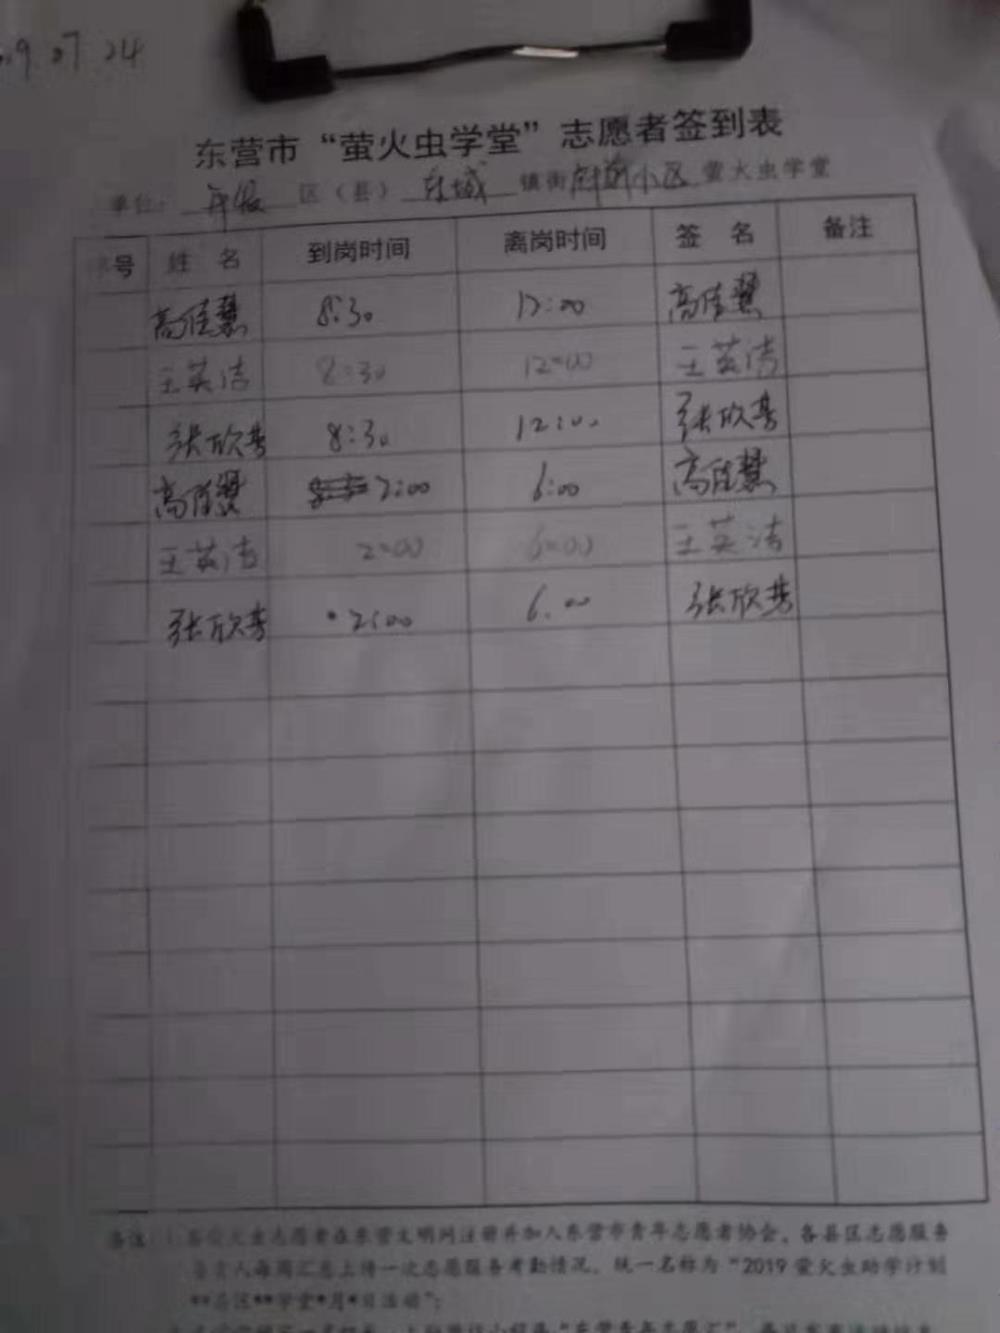 9.07.24
东营市“萤火虫学堂”志愿者签到表
单位： 区（县） 东城 镇街 府前小区 萤火虫学堂
号 姓 名 到岗时间 离岗时间 签 名 备注
高佳慧 8:30 12:00 高佳慧
王英洁 8:30 12:00 王英洁
张欣 8:30 12:00 张欣
高佳慧 2:00 6:00 高佳慧
王英洁 2:00 6:00 王英洁
张欣 2:00 6:00 张欣
备注： 志愿者在东营文明网注册并加入东营市青年志愿者协会，各县区志愿服务
人每周汇总上传一次志愿服务考勤情况，统一名称为“2019萤火虫助学计划
**县区**学堂*月*日活动”；
“东营青年志愿汇”，